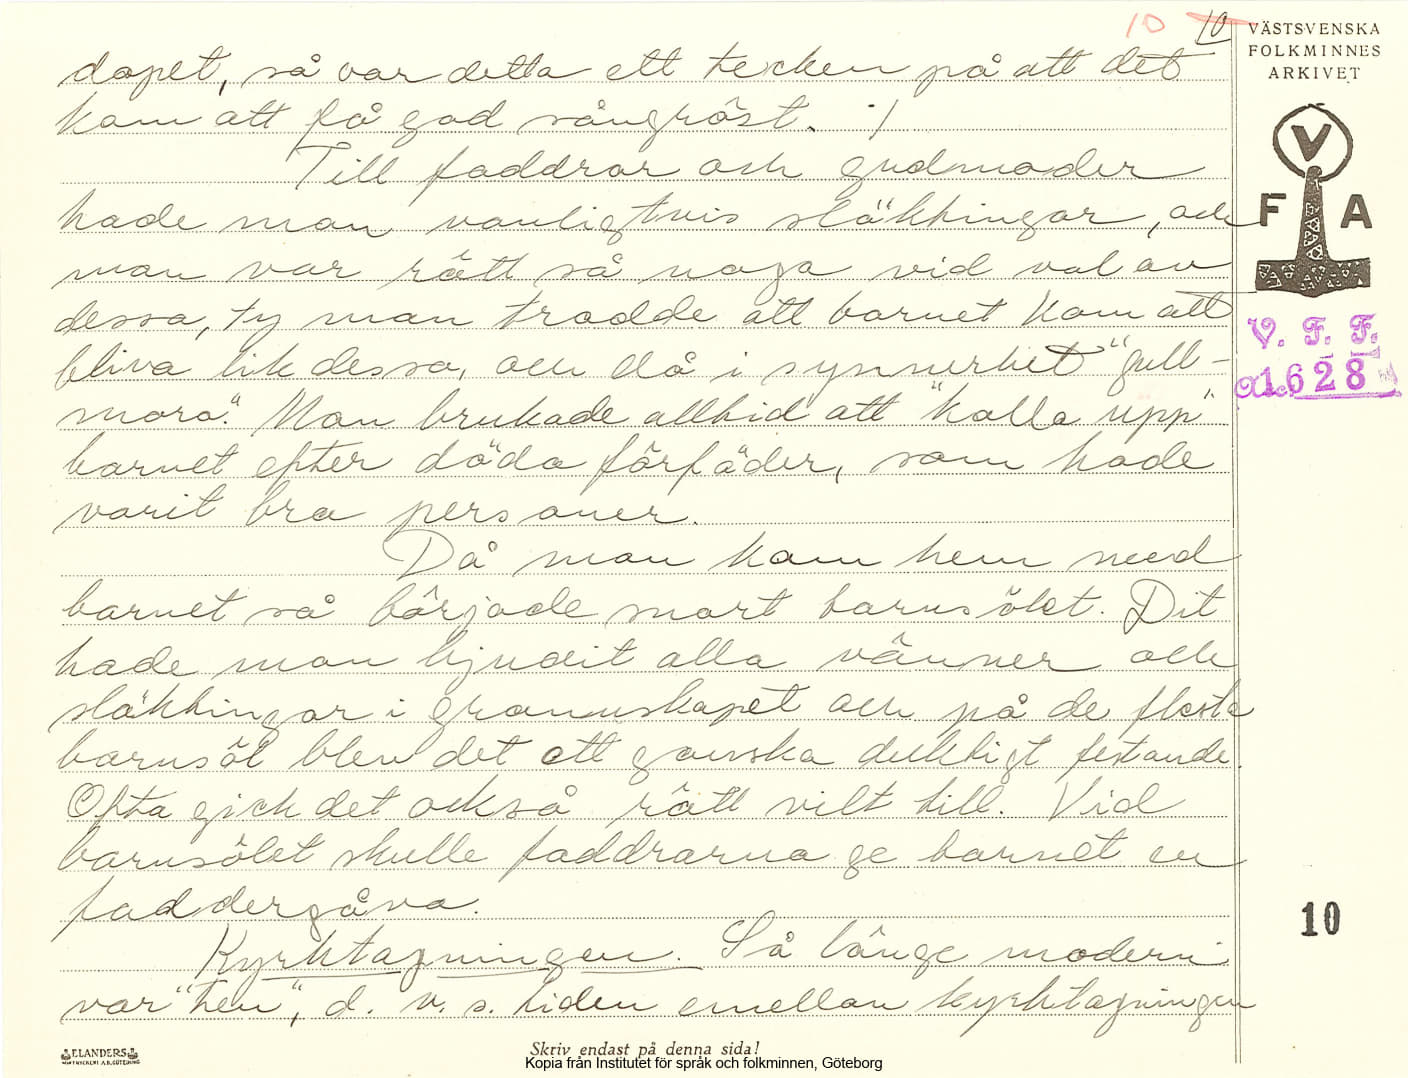 10 10
VÄSTSVENSKA
FOLKMINNES
ARKIVET
V
F A
V. F. F.
1628
dopet, så var detta ett tecken på att det
kom att få god sångröst. ·/
Till faddrar och gudmoder
hade man vanligtvis släktingar, och
man var rätt så noga vid val av
dessa, ty man trodde att barnet kom att
bliva lik dessa, och då i synnerhet "gull-
mora". Man brukade alltid att "kalla upp"
barnet efter döda förfäder, som hade
varit bra personer.
Då man kom hem med
barnet så började snart barnsölet. Dit
hade man bjudit alla vänner och
släktingar i grannskapet och på de flesta
barnsöl blev det ett ganska duktigt festande.
Ofta gick det också rätt vilt till. Vid
barnsölet skulle faddrarna ge barnet en
faddergåva.
Kyrktagningen. Så länge modern
var "hen", d. v. s. tiden emellan kyrktagningen
10
ELANDERS
Skriv endast på denna sida!
Kopia från Institutet för språk och folkminnen, Göteborg